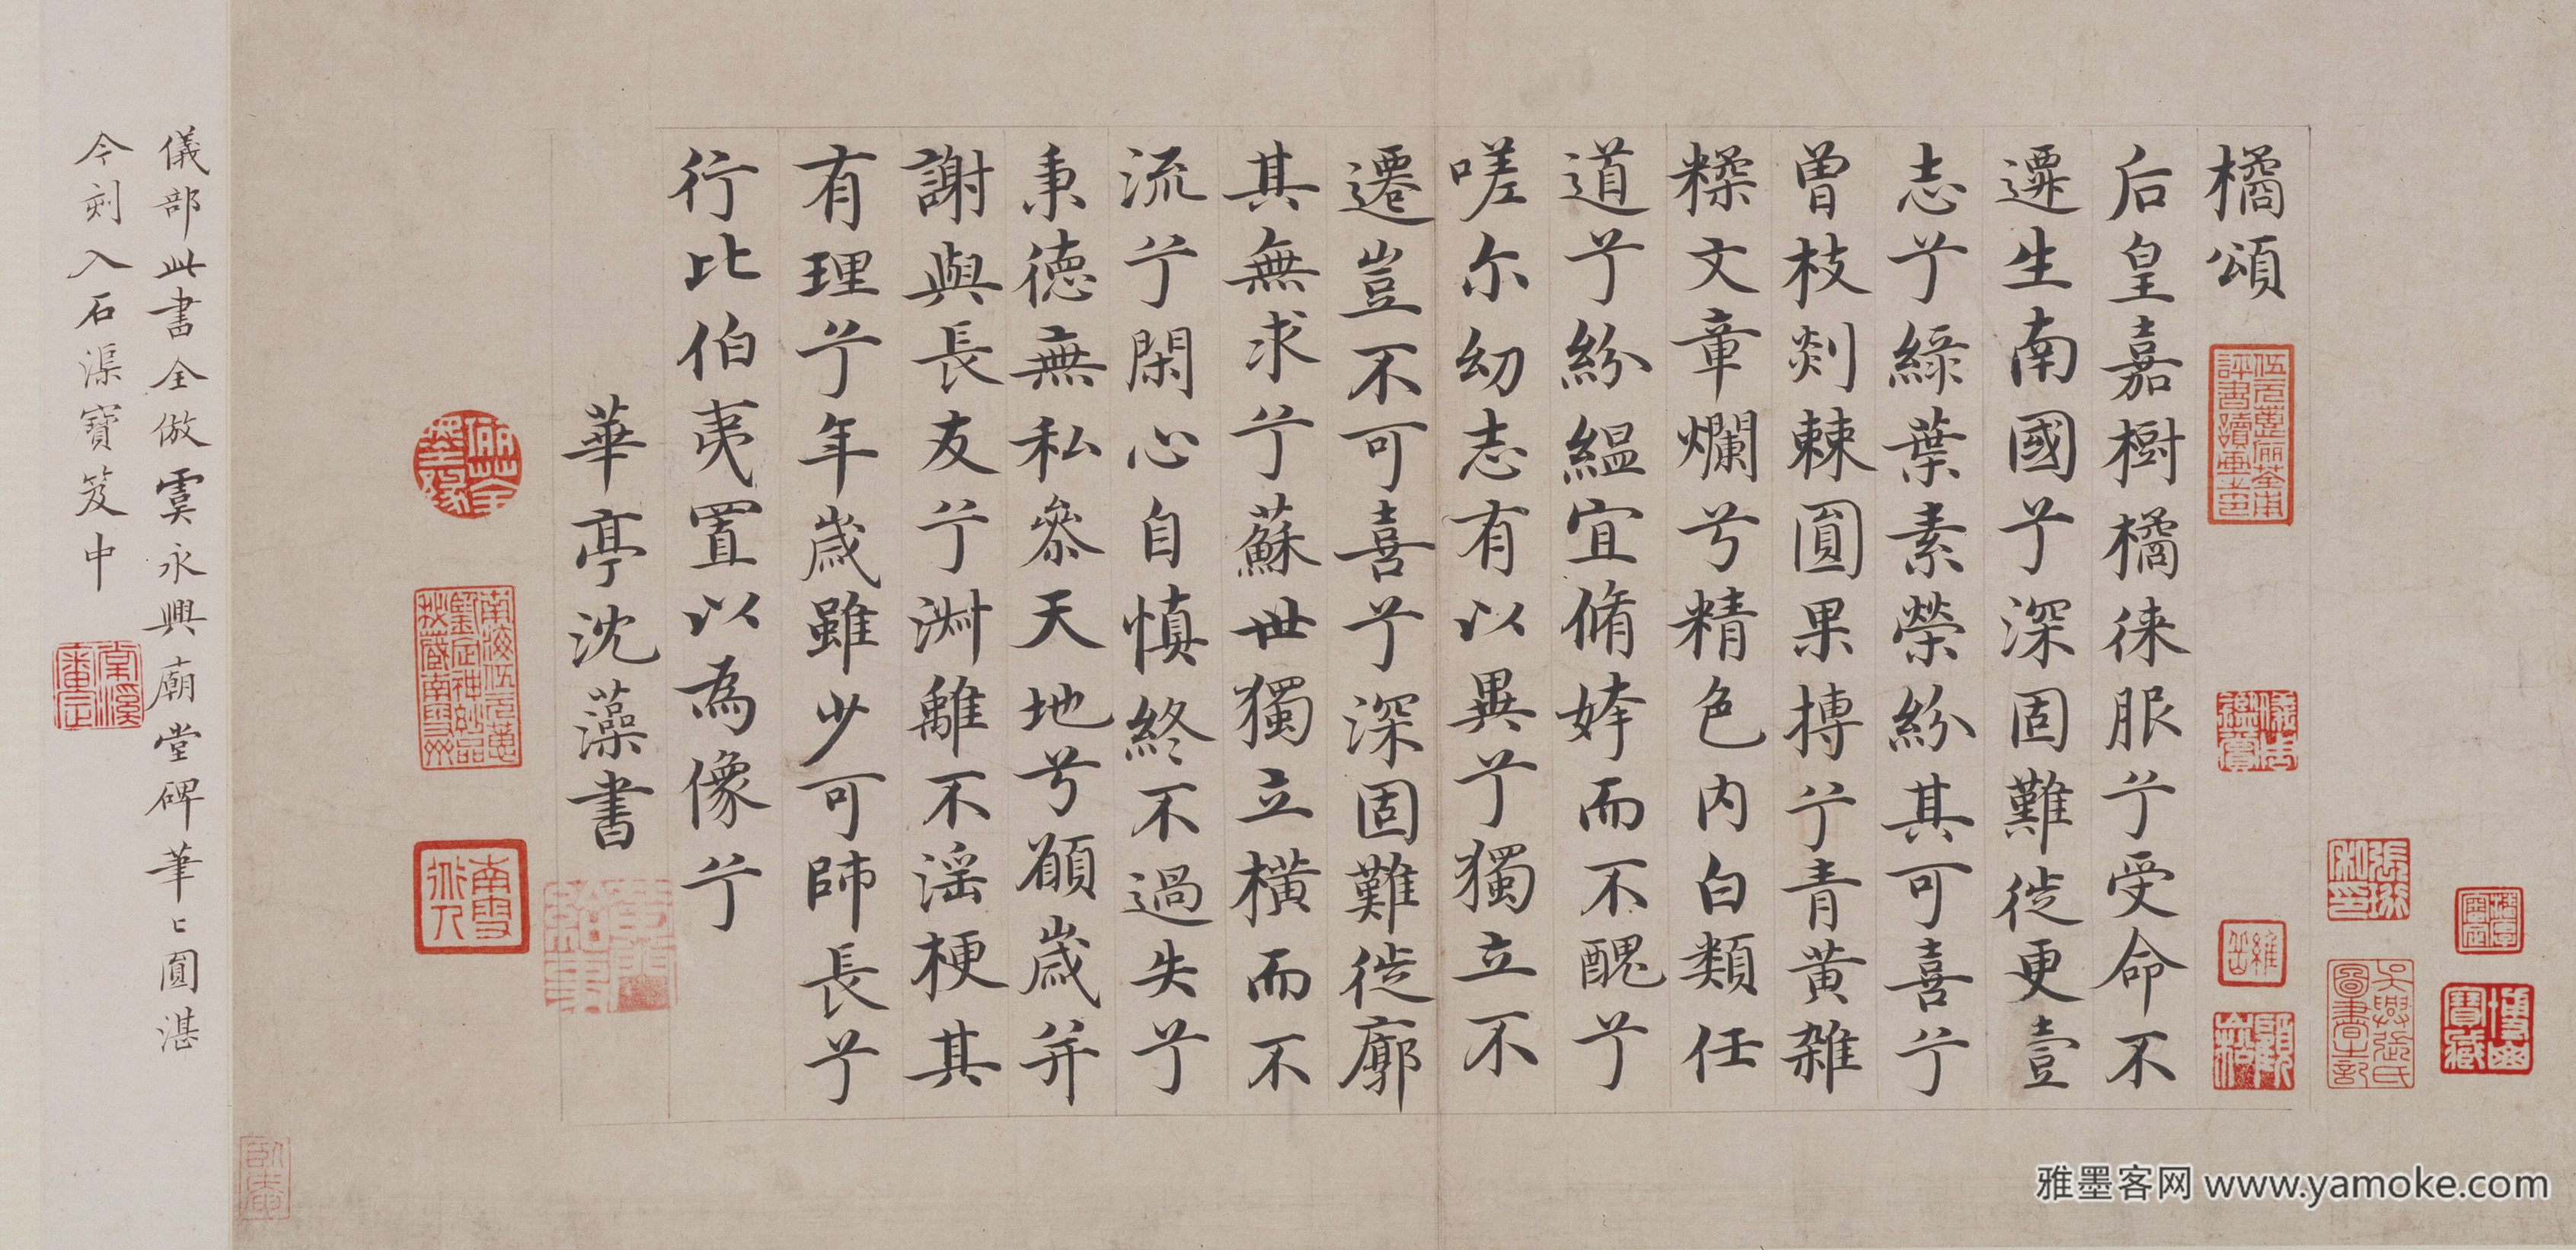 橘頌
后皇嘉樹橘徠服兮受命不
遷生南國兮深固難徙更壹
志兮綠葉素榮紛其可喜兮
曾枝剡棘圓果摶兮青黃雜
糅文章爛兮精色内白類任
道兮紛縕宜脩姱而不醜兮
嗟尔幼志有以異兮獨立不
遷豈不可喜兮深固難徙廓
其無求兮蘇世獨立橫而不
流兮閑心自慎終不過失兮
秉德無私參天地兮願歲并
謝與長友兮淑離不滛梗其
有理兮年歲雖少可師長兮
行比伯夷置以為像兮
華亭沈藻書
儀部此書全倣虞永興廟堂碑筆〻圓湛
今刻入石渠寶笈中
雅墨客网 www.yamoke.com